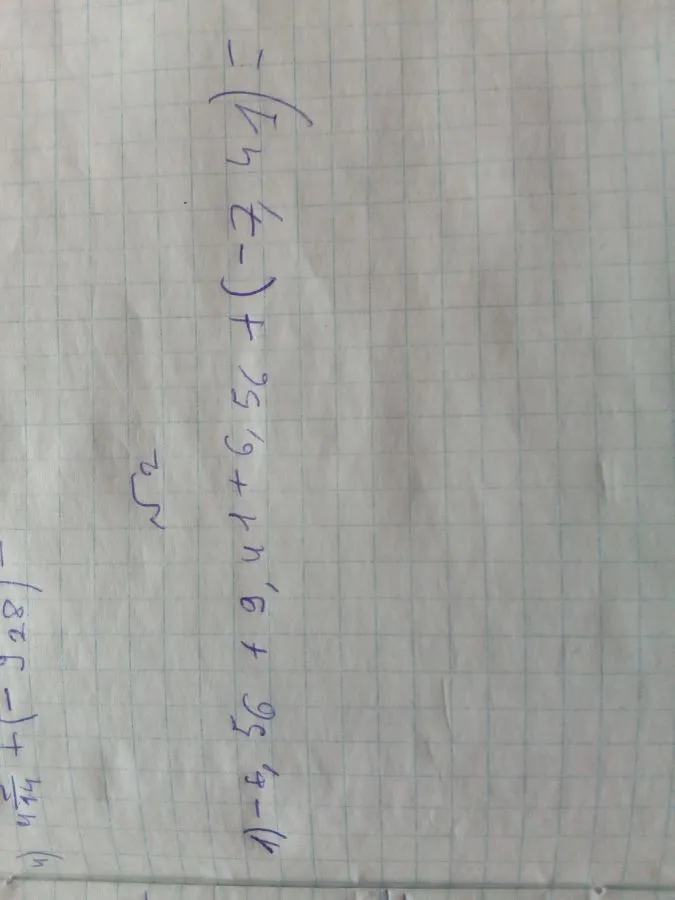 4) 4 14 + (- 9 28) =
№2
1) -8,56 + 9,41 + 6,56 + (-7,41) =